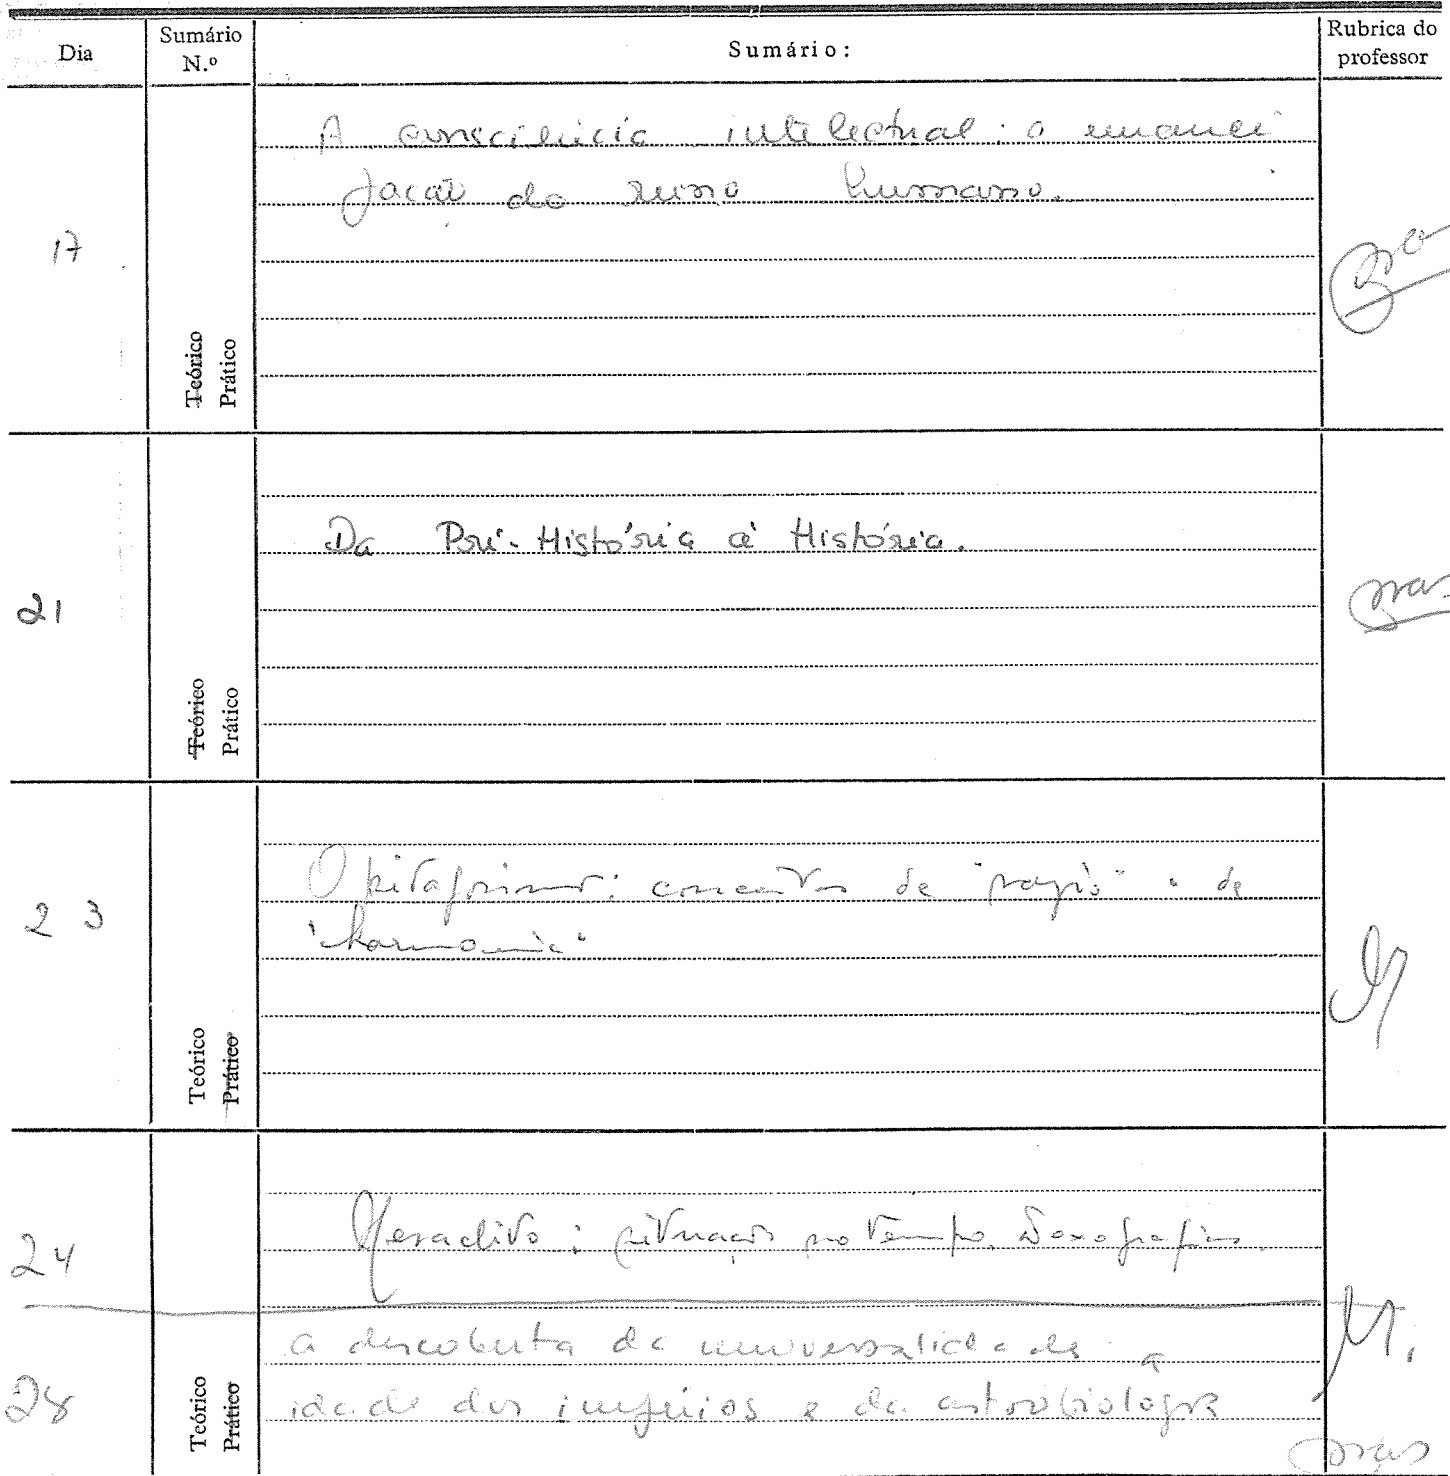 Dia
Sumário N.º
Sumário:
Rubrica do professor
17
Teórico
Prático
A consciência intelectual: a emanci
pação do reino humano.
21
Teórico
Prático
Da Pré-História à História.
23
Teórico
Prático
O pitagorismo: conceitos de "razão" e de
"harmonia"
24
Heraclito: situação no tempo. Doxografias.
28
Teórico
Prático
a descoberta da universalidade a
idade dos impérios e da astrobiologia